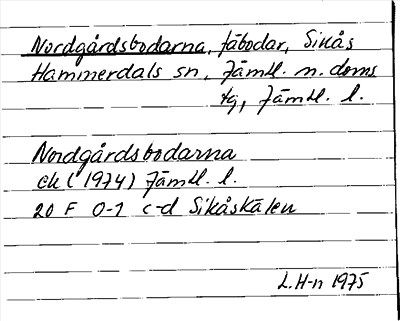 Nordgårdsbodarna, fäbodar, Sikås
Hammerdals sn, Jämtl. n. doms
tg, Jämtl. l.
Nordgårdsbodarna
ek (1974) Jämtl. l.
20 F 0-1 c-d Sikåskälen
L.H-n 1975